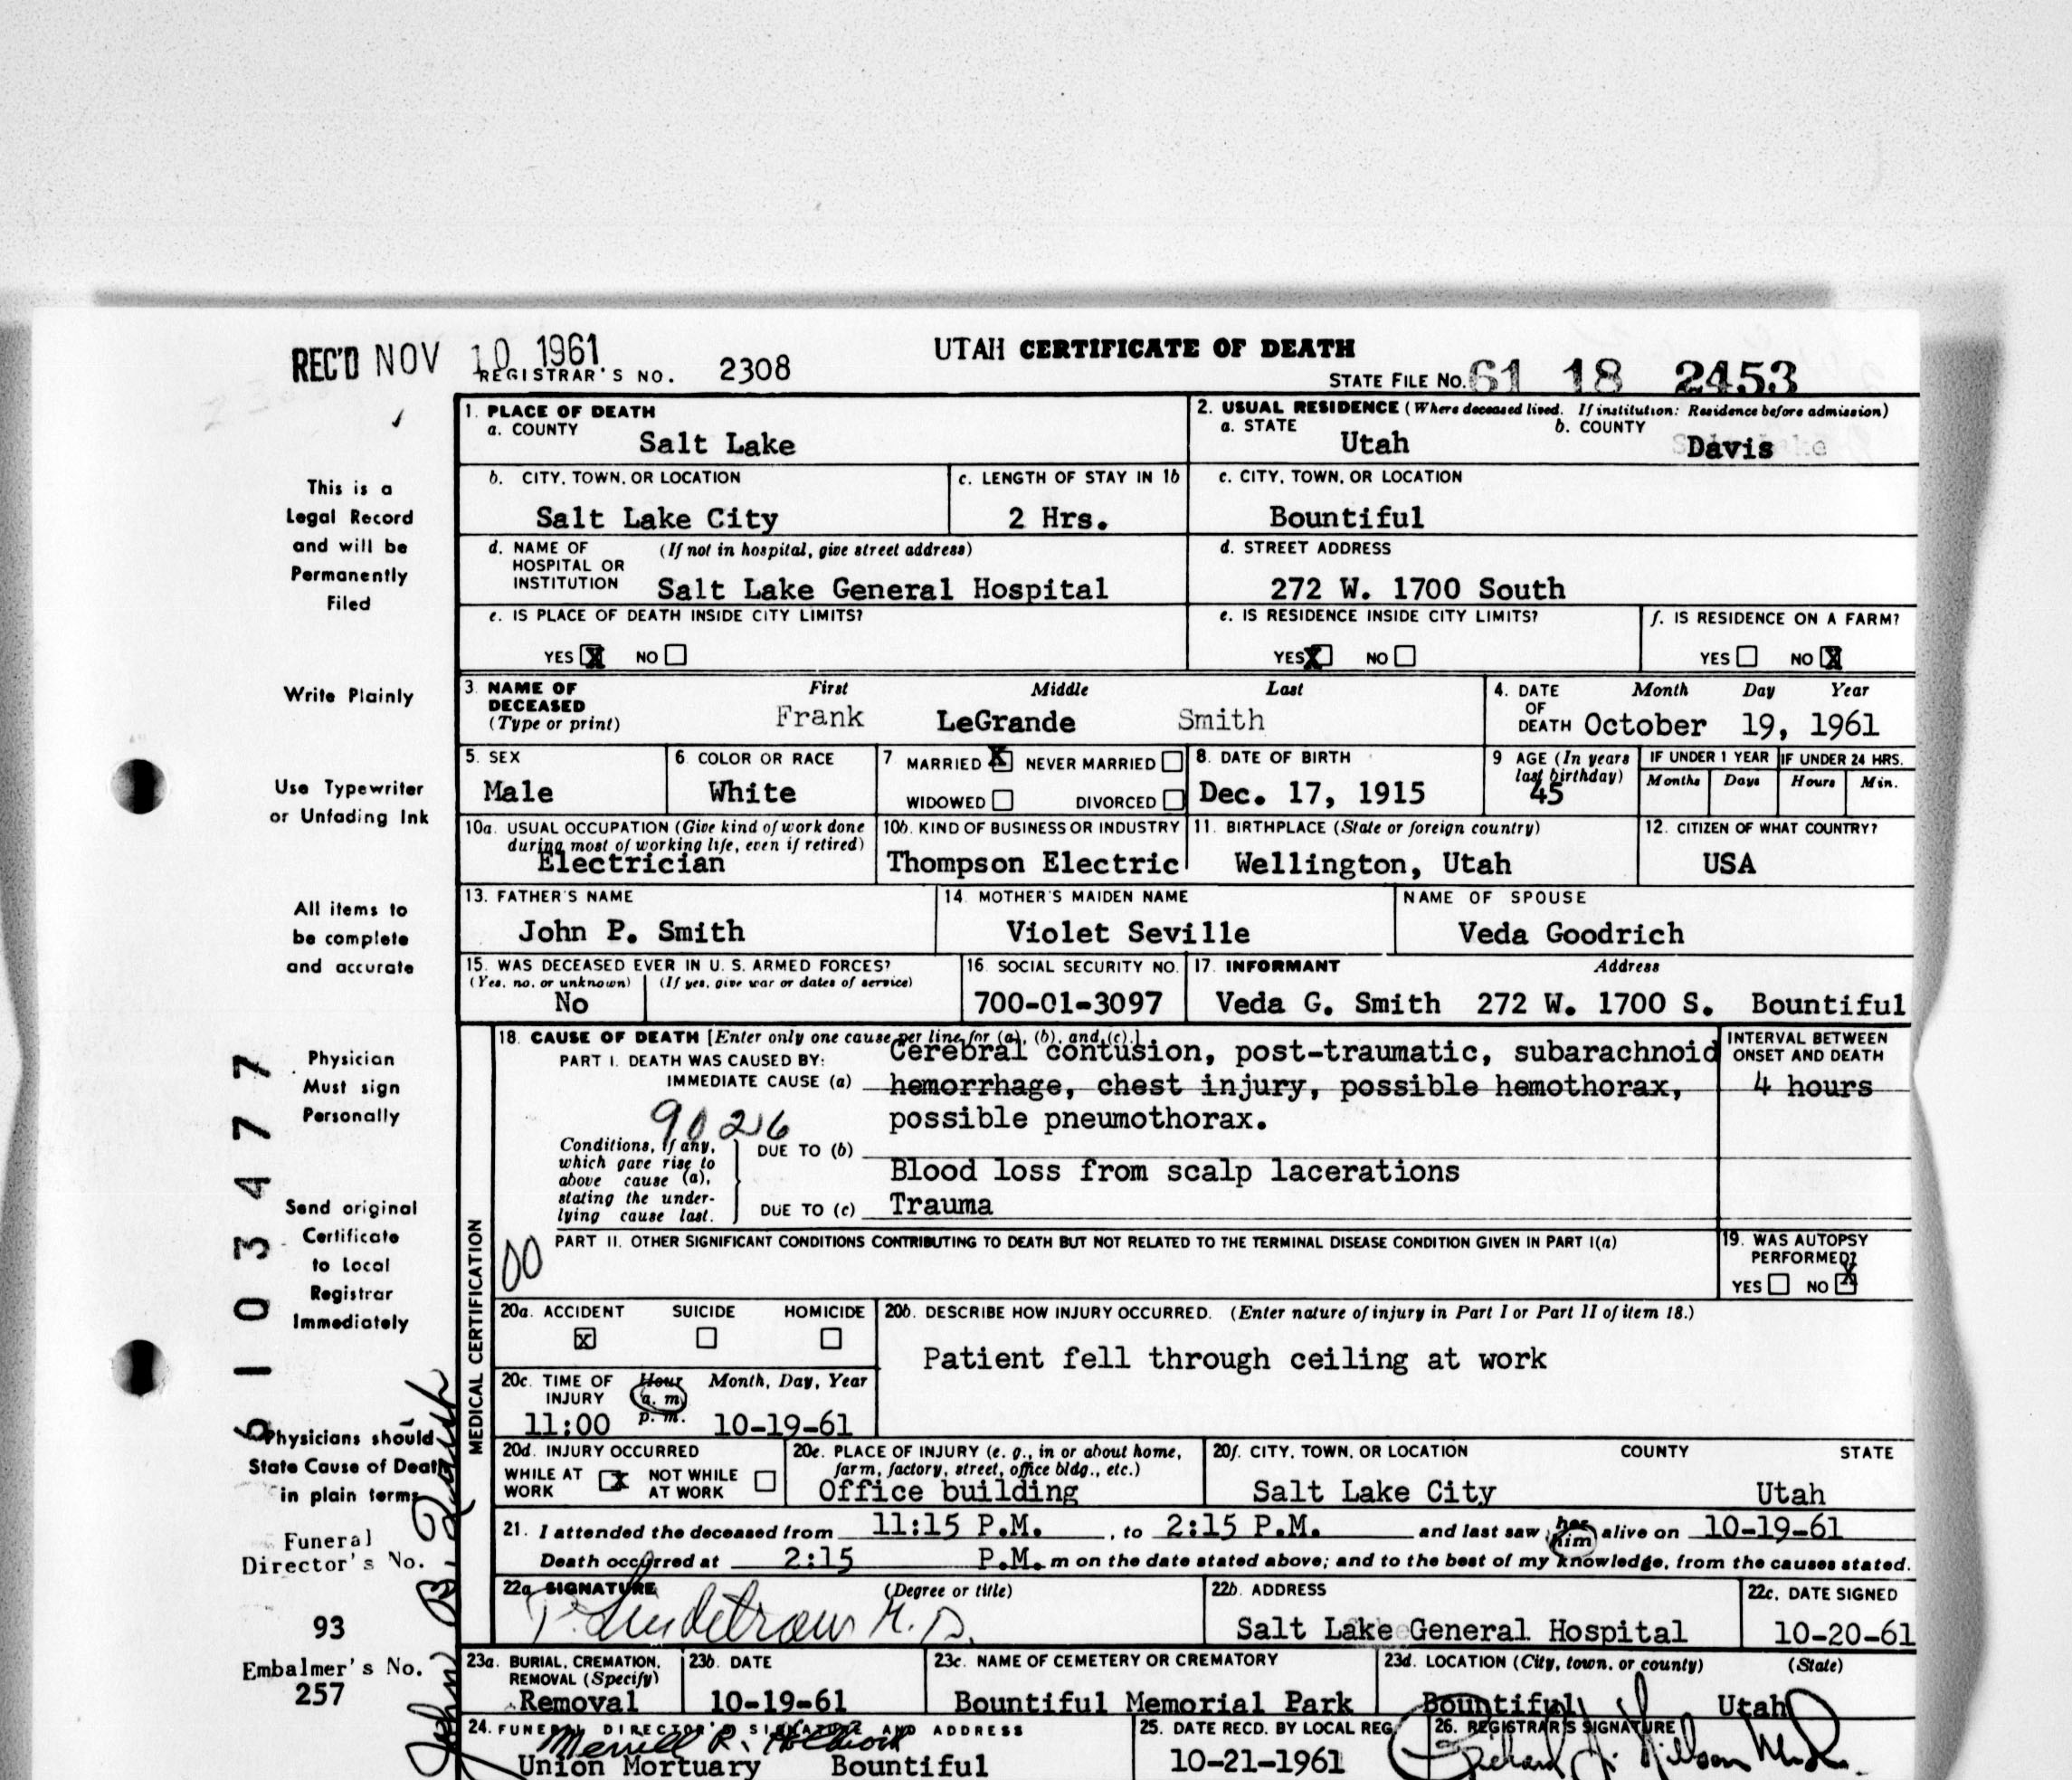 REC'D NOV 10 1961
UTAH CERTIFICATE OF DEATH
REGISTRAR'S NO. 2308
STATE FILE No. 61 18 2453
1. PLACE OF DEATH
a. COUNTY
Salt Lake
2. USUAL RESIDENCE (Where deceased lived. If institution: Residence before admission)
a. STATE b. COUNTY
Utah Davis
b. CITY, TOWN, OR LOCATION
Salt Lake City
c. LENGTH OF STAY IN 1b
2 Hrs.
c. CITY, TOWN, OR LOCATION
Bountiful
d. NAME OF HOSPITAL OR INSTITUTION (If not in hospital, give street address)
Salt Lake General Hospital
d. STREET ADDRESS
272 W. 1700 South
e. IS PLACE OF DEATH INSIDE CITY LIMITS?
YES X NO
e. IS RESIDENCE INSIDE CITY LIMITS?
YES X NO
f. IS RESIDENCE ON A FARM?
YES NO X
3. NAME OF DECEASED (Type or print)
First Middle Last
Frank LeGrande Smith
4. DATE OF DEATH
Month Day Year
October 19, 1961
5. SEX
Male
6. COLOR OR RACE
White
7. MARRIED X NEVER MARRIED
WIDOWED DIVORCED
8. DATE OF BIRTH
Dec. 17, 1915
9 AGE (In years last birthday)
45
IF UNDER 1 YEAR
Months Days
IF UNDER 24 HRS.
Hours Min.
10a. USUAL OCCUPATION (Give kind of work done during most of working life, even if retired)
Electrician
10b. KIND OF BUSINESS OR INDUSTRY
Thompson Electric
11. BIRTHPLACE (State or foreign country)
Wellington, Utah
12. CITIZEN OF WHAT COUNTRY?
USA
13. FATHER'S NAME
John P. Smith
14. MOTHER'S MAIDEN NAME
Violet Seville
NAME OF SPOUSE
Veda Goodrich
15. WAS DECEASED EVER IN U. S. ARMED FORCES?
(Yes, no, or unknown) (If yes, give war or dates of service)
No
16. SOCIAL SECURITY NO.
700-01-3097
17. INFORMANT Address
Veda G. Smith 272 W. 1700 S. Bountiful
MEDICAL CERTIFICATION
18. CAUSE OF DEATH [Enter only one cause per line for (a), (b), and (c).]
PART I. DEATH WAS CAUSED BY:
IMMEDIATE CAUSE (a)
Cerebral contusion, post-traumatic, subarachnoid
hemorrhage, chest injury, possible hemothorax,
possible pneumothorax.
INTERVAL BETWEEN ONSET AND DEATH
4 hours
9026
Conditions, if any, which gave rise to above cause (a), stating the underlying cause last.
DUE TO (b)
Blood loss from scalp lacerations
DUE TO (c) Trauma
00
PART II. OTHER SIGNIFICANT CONDITIONS CONTRIBUTING TO DEATH BUT NOT RELATED TO THE TERMINAL DISEASE CONDITION GIVEN IN PART I(a)
19. WAS AUTOPSY PERFORMED?
YES NO X
20a. ACCIDENT SUICIDE HOMICIDE
X
20b. DESCRIBE HOW INJURY OCCURRED. (Enter nature of injury in Part I or Part II of item 18.)
Patient fell through ceiling at work
20c. TIME OF INJURY
Hour a. m. p. m. Month, Day, Year
11:00 10-19-61
20d. INJURY OCCURRED
WHILE AT WORK X NOT WHILE AT WORK
20e. PLACE OF INJURY (e. g., in or about home, farm, factory, street, office bldg., etc.)
Office building
20f. CITY, TOWN, OR LOCATION COUNTY STATE
Salt Lake City Utah
21. I attended the deceased from 11:15 P.M. , to 2:15 P.M. and last saw her him alive on 10-19-61
Death occurred at 2:15 P.M. m on the date stated above; and to the best of my knowledge, from the causes stated.
22a. SIGNATURE (Degree or title)
M.D.
22b. ADDRESS
Salt Lake General Hospital
22c. DATE SIGNED
10-20-61
23a. BURIAL, CREMATION, REMOVAL (Specify)
Removal
23b. DATE
10-19-61
23c. NAME OF CEMETERY OR CREMATORY
Bountiful Memorial Park
23d. LOCATION (City, town, or county) (State)
Bountiful Utah
24. FUNERAL DIRECTOR'S SIGNATURE AND ADDRESS
Merrill R. Holbrook
Union Mortuary Bountiful
25. DATE RECD. BY LOCAL REG.
10-21-1961
26. REGISTRAR'S SIGNATURE
This is a
Legal Record
and will be
Permanently
Filed
Write Plainly
Use Typewriter
or Unfading Ink
All items to
be complete
and accurate
Physician
Must sign
Personally
Send original
Certificate
to Local
Registrar
Immediately
Physicians should
State Cause of Death
in plain terms
Funeral
Director's No.
93
Embalmer's No.
257
6103477
John B.